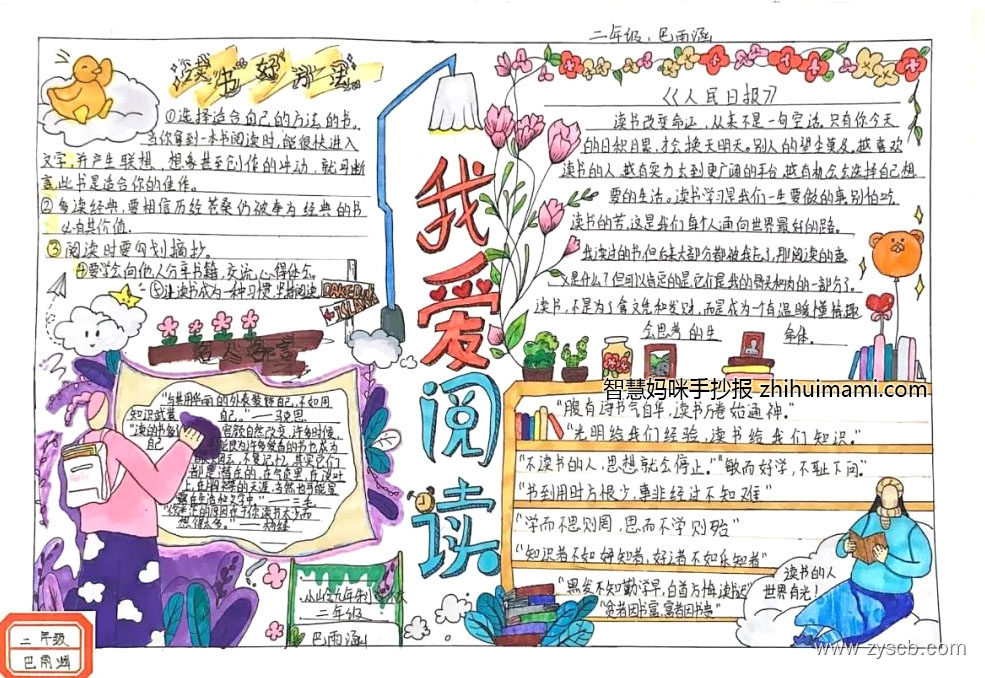 二年级：巴雨涵
读书好办法
①选择适合自己的方法的书。
当你拿到一本书阅读时，能很快进入
文字，并产生联想、想象甚至创作的冲动，就可断
言，此书是适合你的佳作。
②多读经典，要相信历经苍桑仍被奉为经典的书
必有其价值.
③阅读时要勾划摘抄.
④要学会向他人分享书籍，交流心得体会。
⑤让读书成为一种习惯，坚持阅读
名人名言
"与其用华丽的外表装饰自己，不如用
知识武装 自己。"——马克思
"读的书多 容颜自然改变，许多时候，
自己
在生活和文字中。"——三毛
读书太少而
想得太多。"——杨绛
二年级
巴雨涵
二年级
巴雨涵
我爱阅读
《人民日报》
读书改变命运，从来不是一句空话。只有你今天
的日积月累，才会换天明天。别人的望尘莫及，越喜欢
读书的人，越有实力去到更广阔的平台，越有机会去选择自己想
要的生活。读书学习是我们一生要做的事，别怕吃
读书的苦，这是我们每个人通向世界最好的路。
我读过的书，但后来大部分都被我忘了，那阅读的意
义是什么？但可以肯定的是，它们是我的骨头和肉的一部分了。
读书，不是为了拿文凭和发财，而是成为一个有温暖懂情趣
会思考的生 命体.
智慧妈咪手抄报 zhihuimami.com
"腹有诗书气自华，读书万卷始通神."
"光明给我们经验，读书给我们知识."
"不读书的人，思想就会停止." "敏而好学，不耻下问."
"书到用时方恨少，事非经过不知难"
"学而不思则罔，思而不学则殆"
"知识者不如好知者，好之者不如乐知者"
"黑发不知勤学早，白首方悔读书迟"
"贫者因书富，富者因书贵"
读书的人
世界有光！
www.zyscb.com